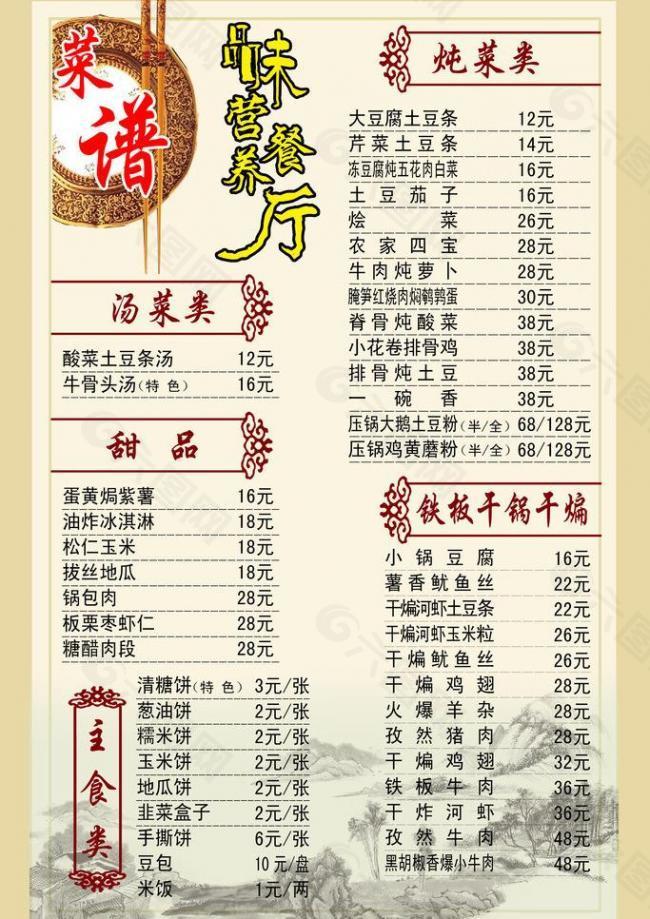 菜谱
品味
营养
餐厅
汤菜类
酸菜土豆条汤 12元
牛骨头汤(特 色) 16元
甜 品
蛋黄焗紫薯 16元
油炸冰淇淋 18元
松仁玉米 18元
拔丝地瓜 18元
锅包肉 28元
板栗枣虾仁 28元
糖醋肉段 28元
主食类
清糖饼(特 色) 3元/张
葱油饼 2元/张
糯米饼 2元/张
玉米饼 2元/张
地瓜饼 2元/张
韭菜盒子 2元/张
手撕饼 6元/张
豆包 10元/盘
米饭 1元/两
炖菜类
大豆腐土豆条 12元
芹菜土豆条 14元
冻豆腐炖五花肉白菜 16元
土豆茄子 16元
烩菜 26元
农家四宝 28元
牛肉炖萝卜 28元
腌笋红烧肉焖鹌鹑蛋 30元
脊骨炖酸菜 38元
小花卷排骨鸡 38元
排骨炖土豆 38元
一碗香 38元
压锅大鹅土豆粉(半/全) 68/128元
压锅鸡黄蘑粉(半/全) 68/128元
铁板干锅干煸
小锅豆腐 16元
薯香鱿鱼丝 22元
干煸河虾土豆条 22元
干煸河虾玉米粒 26元
干煸鱿鱼丝 26元
干煸鸡翅 28元
火爆羊杂 28元
孜然猪肉 28元
干煸鸡翅 32元
铁板牛肉 36元
干炸河虾 36元
孜然牛肉 48元
黑胡椒香爆小牛肉 48元